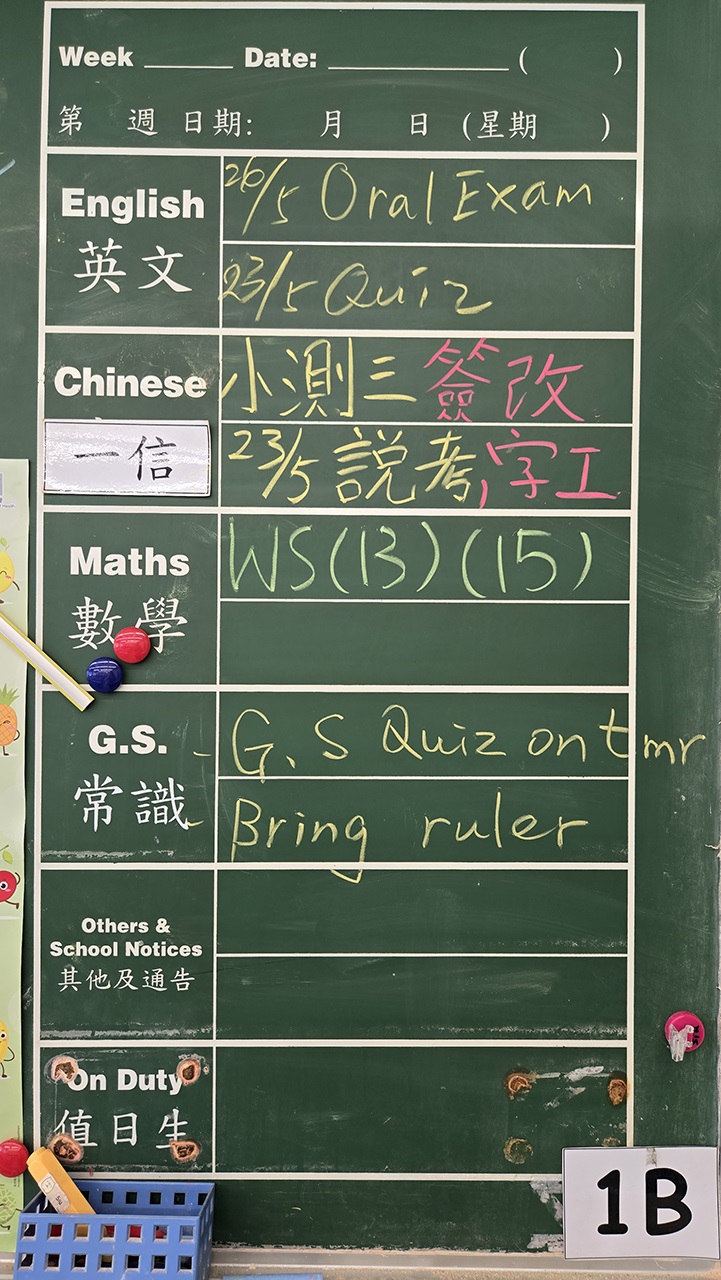 Week ______ Date: ____________ (   )
第 週 日期: 月 日 (星期 )
English
英文
26/5 Oral Exam
23/5 Quiz
Chinese
一信
小測三簽改
23/5 説考,字工
Maths
數學
WS(13)(15)
G.S.
常識
- G.S Quiz on tmr
- Bring ruler
Others &
School Notices
其他及通告
On Duty
值日生
1B